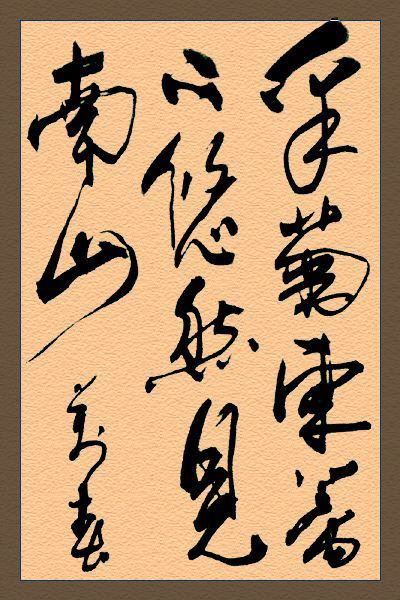 采菊東篱
下悠然見
南山